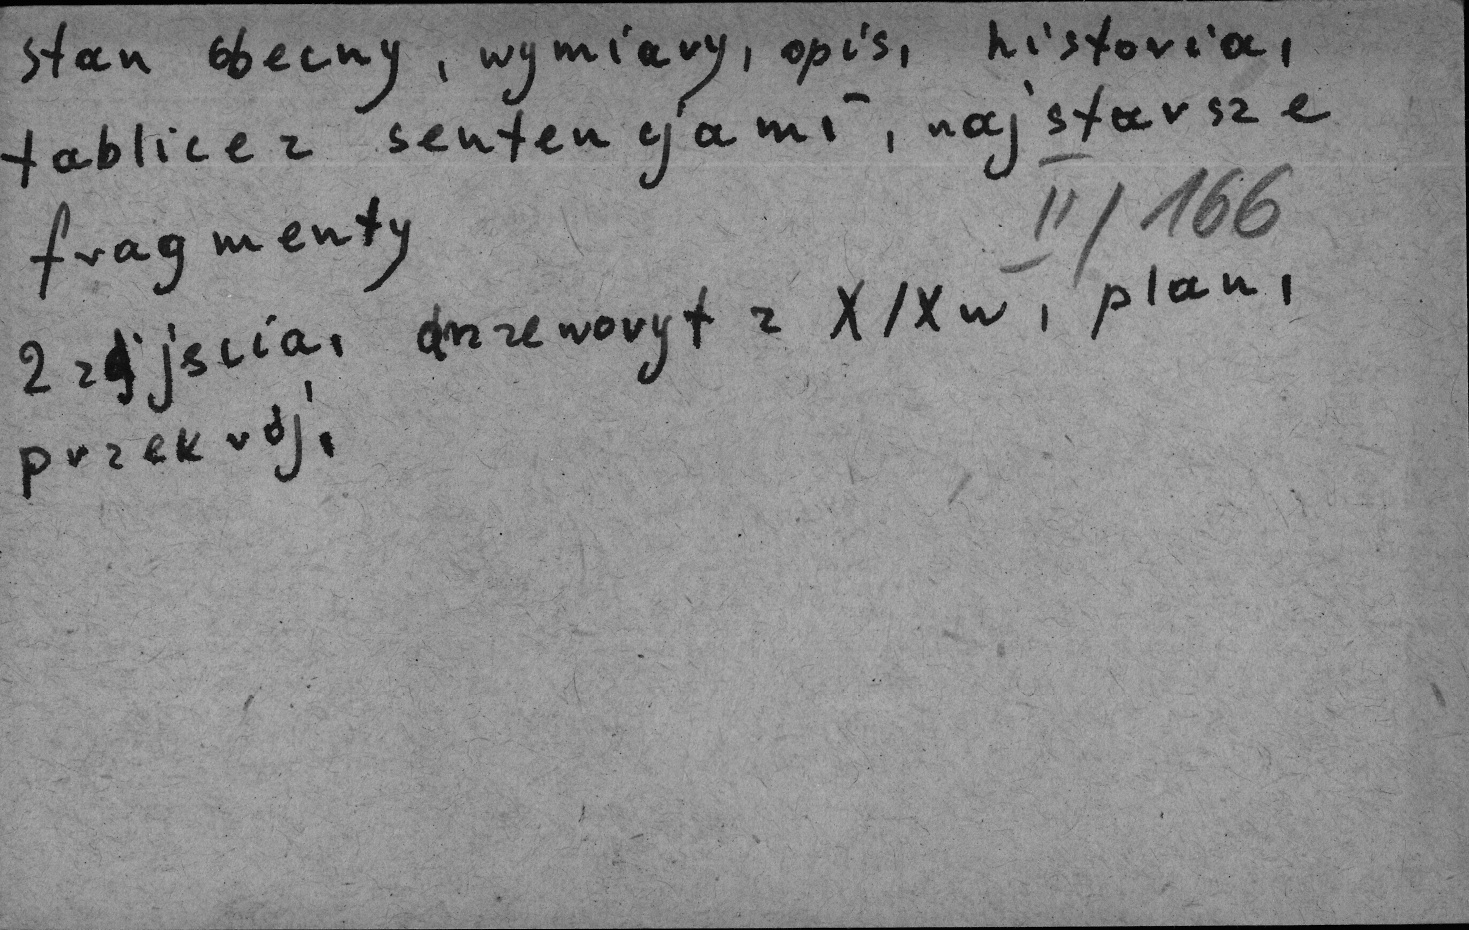 stan obecny, wymiary, opis, historia,
tablice z sentencjami, najstarsze
fragmenty
II/166
2 zdjścia, drzewovyt z X/X w, plan,
przekrój,